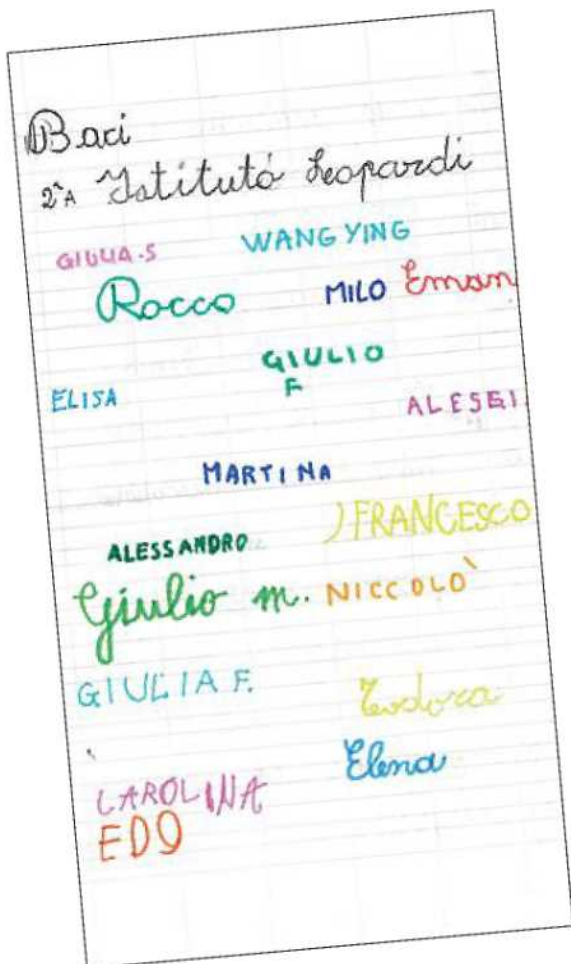 Baci
2ªA Istituto Leopardi
GIULIA.S WANG YING
Rocco MILO Eman
GIULIO
F
ELISA ALESEI
MARTINA
ALESSANDRO FRANCESCO
Giulio m. NICCOLÒ
GIULIA F. Teodora
Elena
CAROLINA
EDO